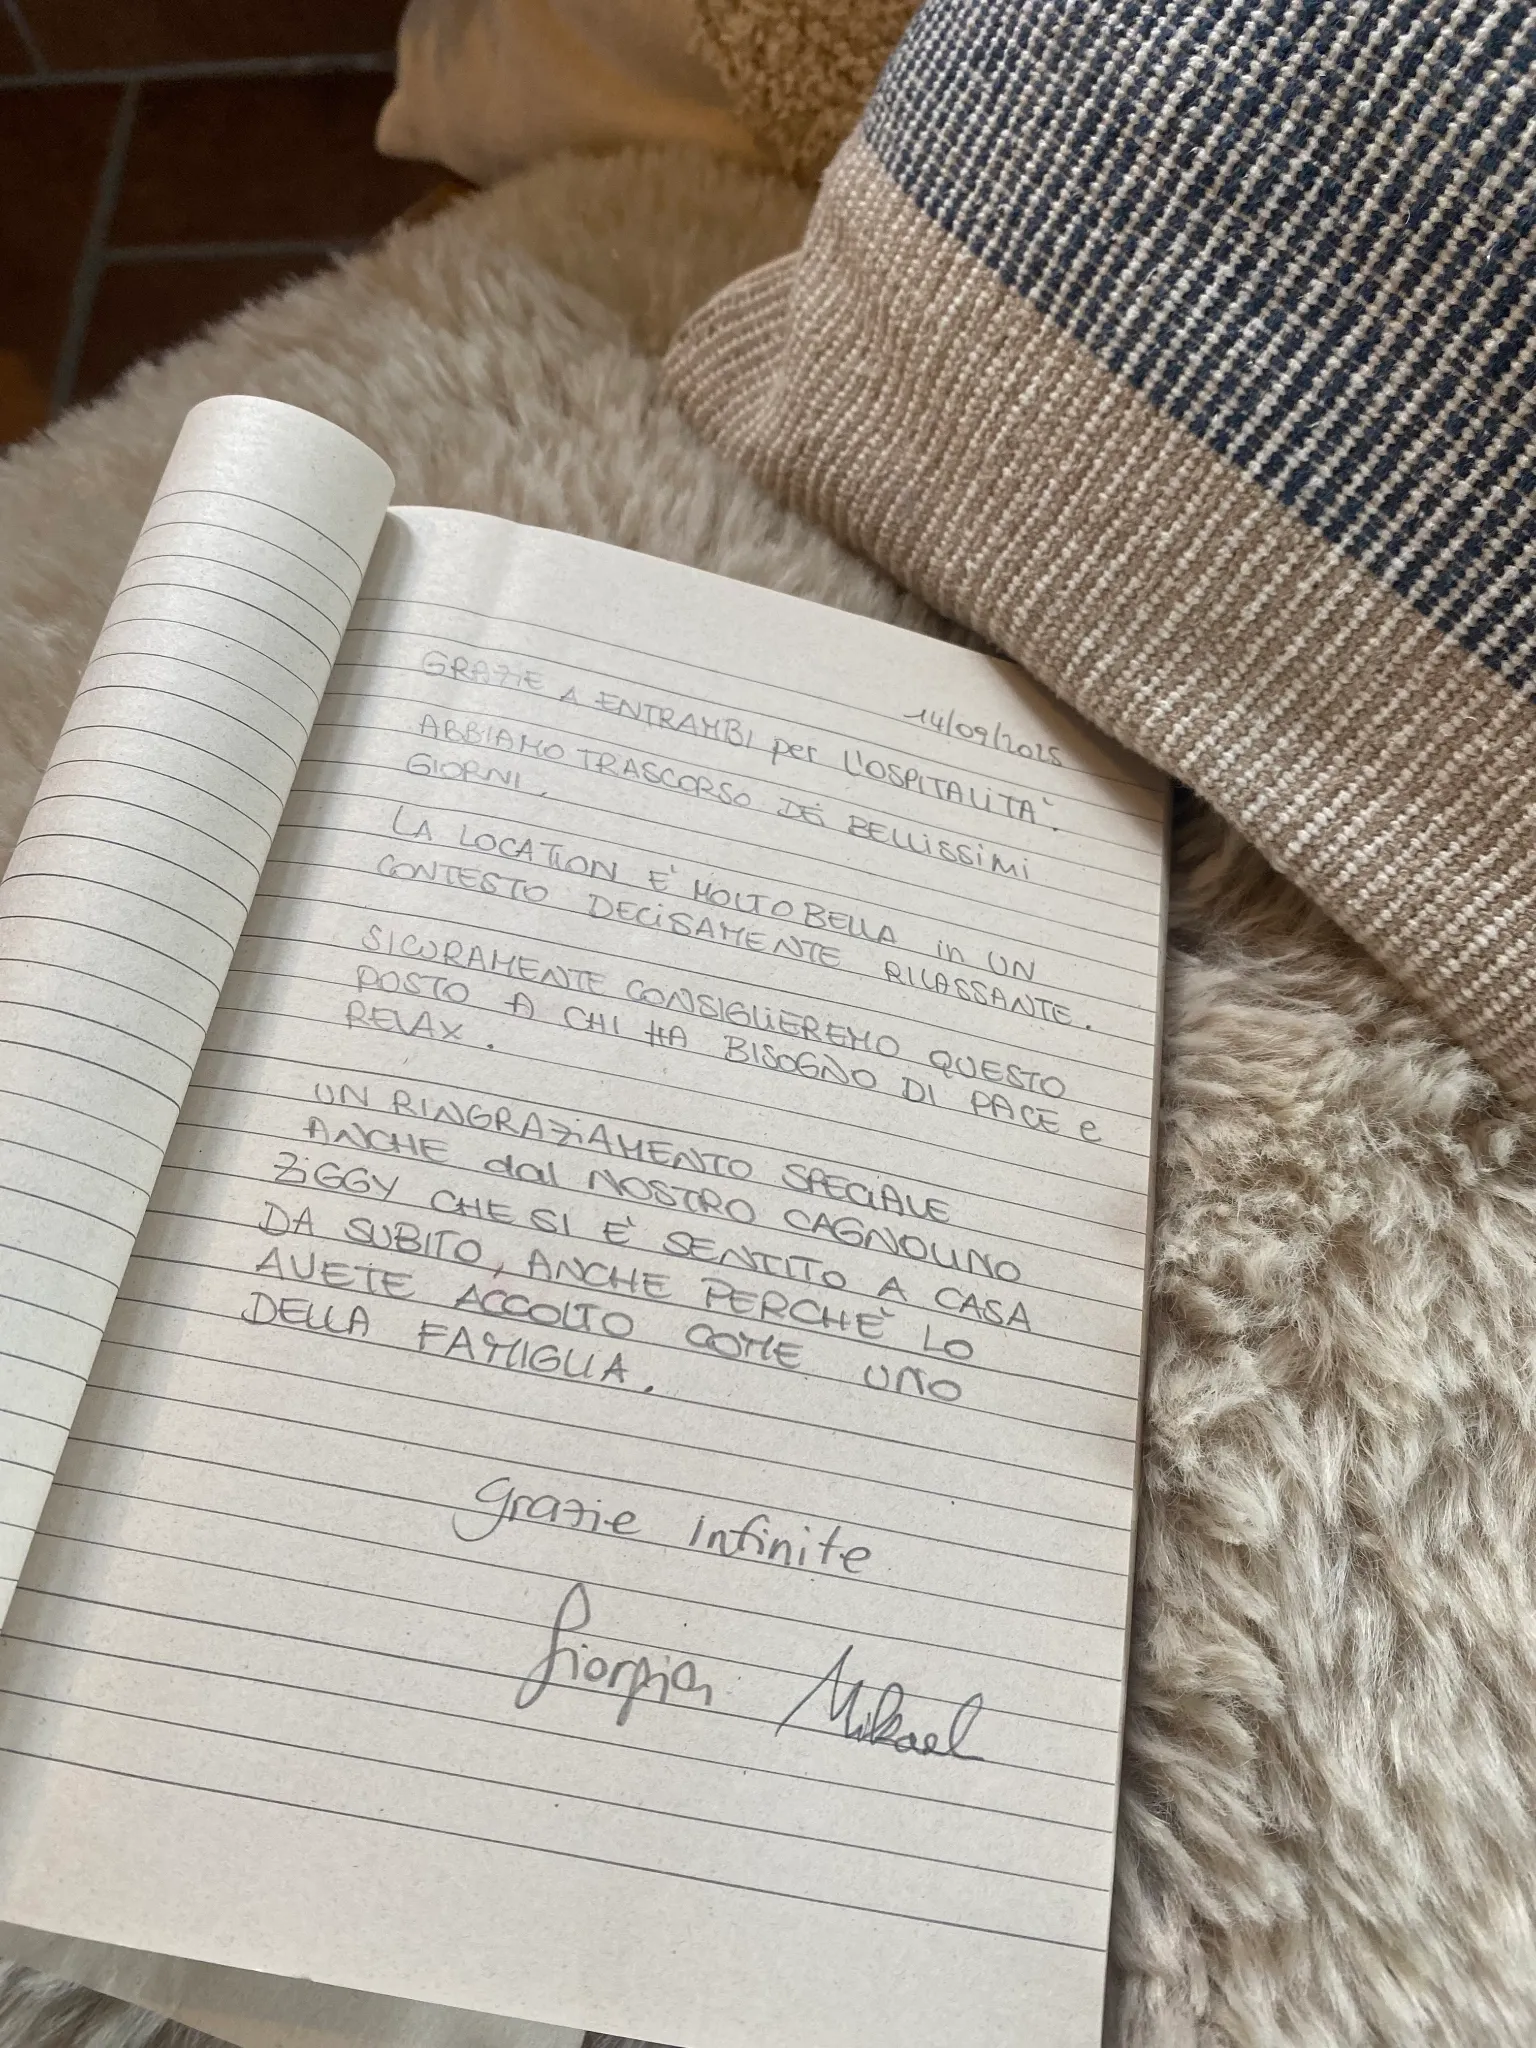 14/09/2025
GRAZIE A ENTRAMBI per L'OSPITALITÀ.
ABBIAMO TRASCORSO DEI BELLISSIMI
GIORNI.
LA LOCATION E' MOLTO BELLA in UN
CONTESTO DECISAMENTE RILASSANTE.
SICURAMENTE CONSIGLIEREMO QUESTO
POSTO A CHI HA BISOGNO DI PACE e
RELAX.
UN RINGRAZIAMENTO SPECIALE
ANCHE dal NOSTRO CAGNOLINO
ZIGGY CHE SI E' SENTITO A CASA
DA SUBITO, ANCHE PERCHE' LO
AVETE ACCOLTO COME UNO
DELLA FAMIGLIA.
Grazie infinite
Giorgia Mikael